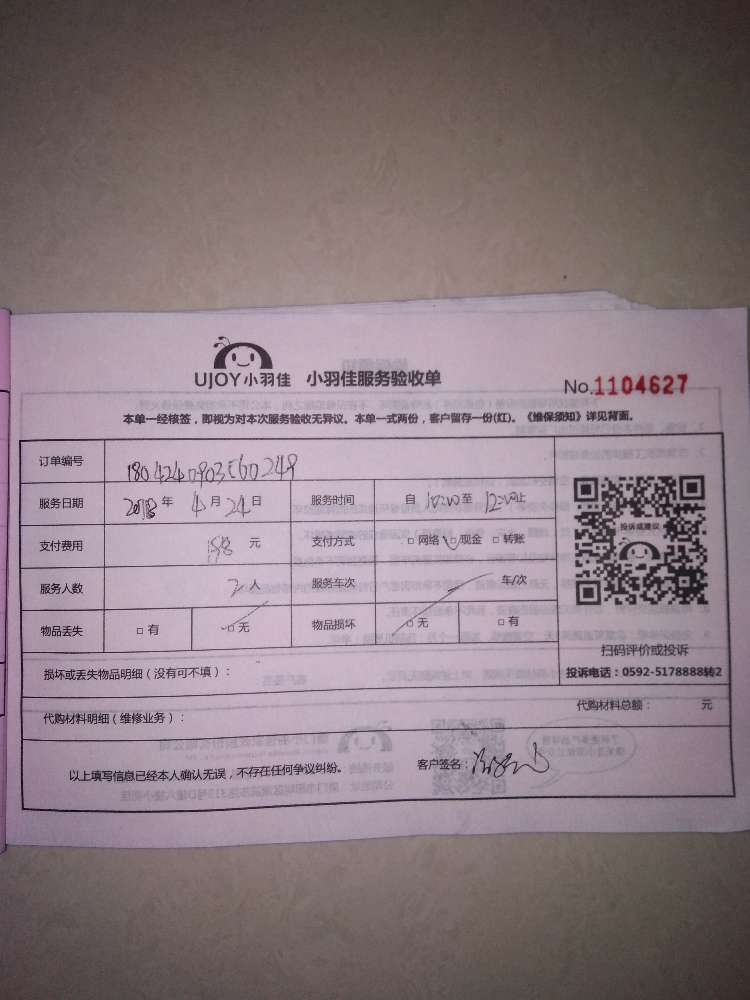 UJOY小羽佳 小羽佳服务验收单
No.1104627
本单一经核签，即视为对本次服务验收无异议。本单一式两份，客户留存一份(红)。《维保须知》详见背面。
订单编号
服务日期 2018 年 4 月 24 日 服务时间 自 10:00 至 12:00 止
支付费用 元 支付方式 □ 网络 □ 现金 □ 转账
服务人数 2 人 服务车次 车/次
物品丢失 □ 有 □ 无 物品损坏 □ 无 □ 有
投诉或建议
扫码评价或投诉
投诉电话：0592-5178888转2
损坏或丢失物品明细（没有可不填）：
代购材料明细（维修业务）： 代购材料总额： 元
以上填写信息已经本人确认无误，不存在任何争议纠纷。 客户签名：